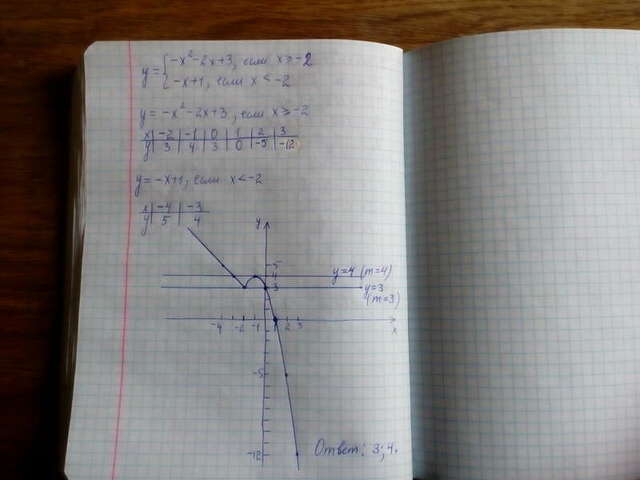 y = { -x² - 2x + 3, если x ≥ -2
-x + 1, если x < -2
y = -x² - 2x + 3, если x ≥ -2
x | -2 | -1 | 0 | 1 | 2 | 3
y | 3 | 4 | 3 | 0 | -5 | -12
y = -x + 1, если x < -2
x | -4 | -3
y | 5 | 4
y
5
4
y=4 (m=4)
3
y=3
(m=3)
-4 -2 -1 1 2 3 x
-5
-12
Ответ: 3; 4.